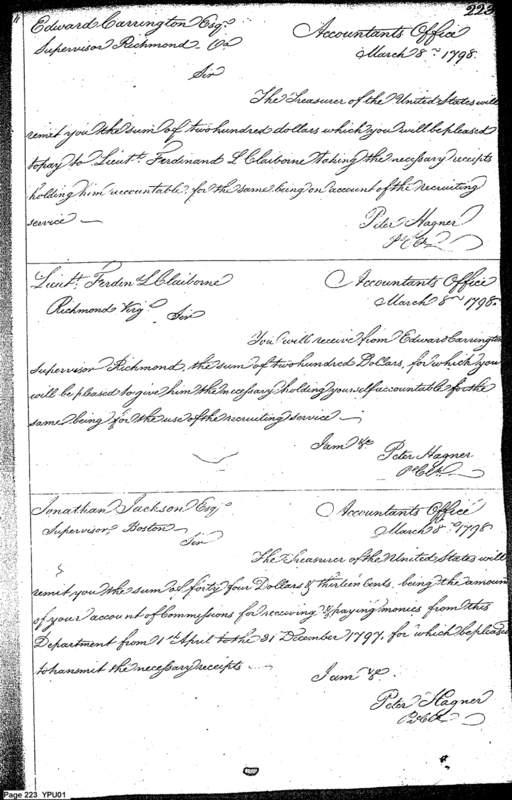 223
Edward Carrington Esqr
Accountants Office
Supervisor Richmond Va
March 8th 1798.
Sir
The Treasurer of the United States will
remit you the sum of two hundred dollars which you will be pleased
to pay to Lieut. Ferdinand L Claiborne taking the necessary receipts
holding him accountable for the same being on account of the recruiting
service —
Peter Hagner
P Clk
Lieut. Ferdin L Claiborne
Accountants Office
Richmond Virga
March 8th 1798.
Sir
You will receive from Edward Carrington
Supervisor Richmond, the sum of two hundred Dollars, for which you
will be pleased to give him the necessary holding yourself accountable for the
same being for the use of the recruiting service —
I am &c
Peter Hagner
P Clk
Jonathan Jackson Esqr
Accountants Office
Supervisor, Boston
March 8th 1798
Sir
The Treasurer of the United States will
remit you the sum of forty four Dollars & thirteen Cents being the amount
of your account of Commissions for receiving & paying monies from this
Department from 1st April to the 31 December 1797, for which be pleased
to transmit the necessary receipts —
I am &c.
Peter Hagner
P Clk
Page 223 YPU01